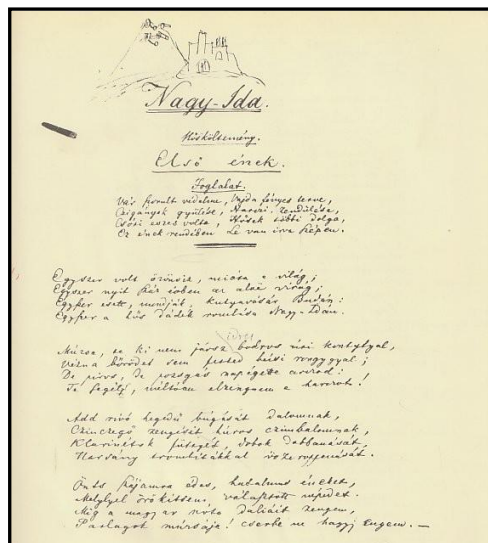 Nagy-Ida.
Hősköltemény.
Első ének.
Foglalat.
Vár szorult védelme, Vajda fényes terve,
Czigányok gyűlése, Harczi rendülése,
Csóri eszes volta, Hősek többi dolga,
Ez ének rendiben Le van irva szépen.
Egyszer volt özönvíz, mióta e világ;
Egyszer nyit száz évben az aloé virág;
Egyszer esett, mondják, kutyavásár Budán:
Egyszer a hős dádék romlása Nagy-Idán.
idres
Múzsa, te ki nem jársz bodros úri kontylyal,
Vézna bőrödet sem fested bécsi ronggyal;
De piros, de pozsgás napégette arczod:
Te segélj, méltóan elzengnem a harczot!
Add rivó hegedű búgását dalomnak,
Czinczogó zengését húros czimbalomnak,
Klarinétok füttyét, dobok dobbanását,
Harsány trombitákkal összeroppanását.
Önts szájamra édes, hatalmas éneket,
Melylyel örökítsem választott népedet.
Míg a magyar nóta dáliáit zengem,
múzsája! cserbe ne hagyj engem. —